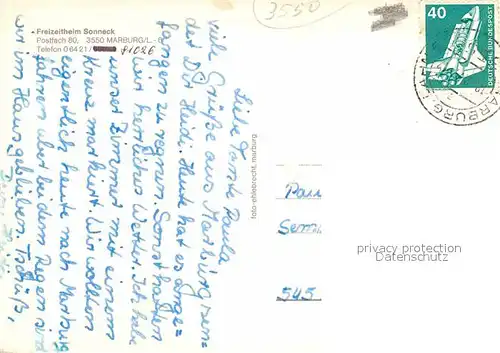 3550
- Freizeitheim Sonneck
Postfach 80, 3550 MARBURG/L.-6
Telefon 06421/ 81026
40
DEUTSCHE BUNDESPOST
MARBURG
Liebe Tante Paula
viele Grüße aus Marburg sen-
det Dir Heidi. Heute hat es ange-
fangen zu regnen. Sonst hatten
wir herrliches Wetter. Ich habe
unser Zimmer mit einem
Kreuz markiert. Wir wollten
eigentlich heute nach Marburg
fahren aber bei dem Regen sind
wir im Haus geblieben. Tschüß,
foto-ehlebrecht, marburg
Pau
Semi
545
privacy protection
Datenschutz